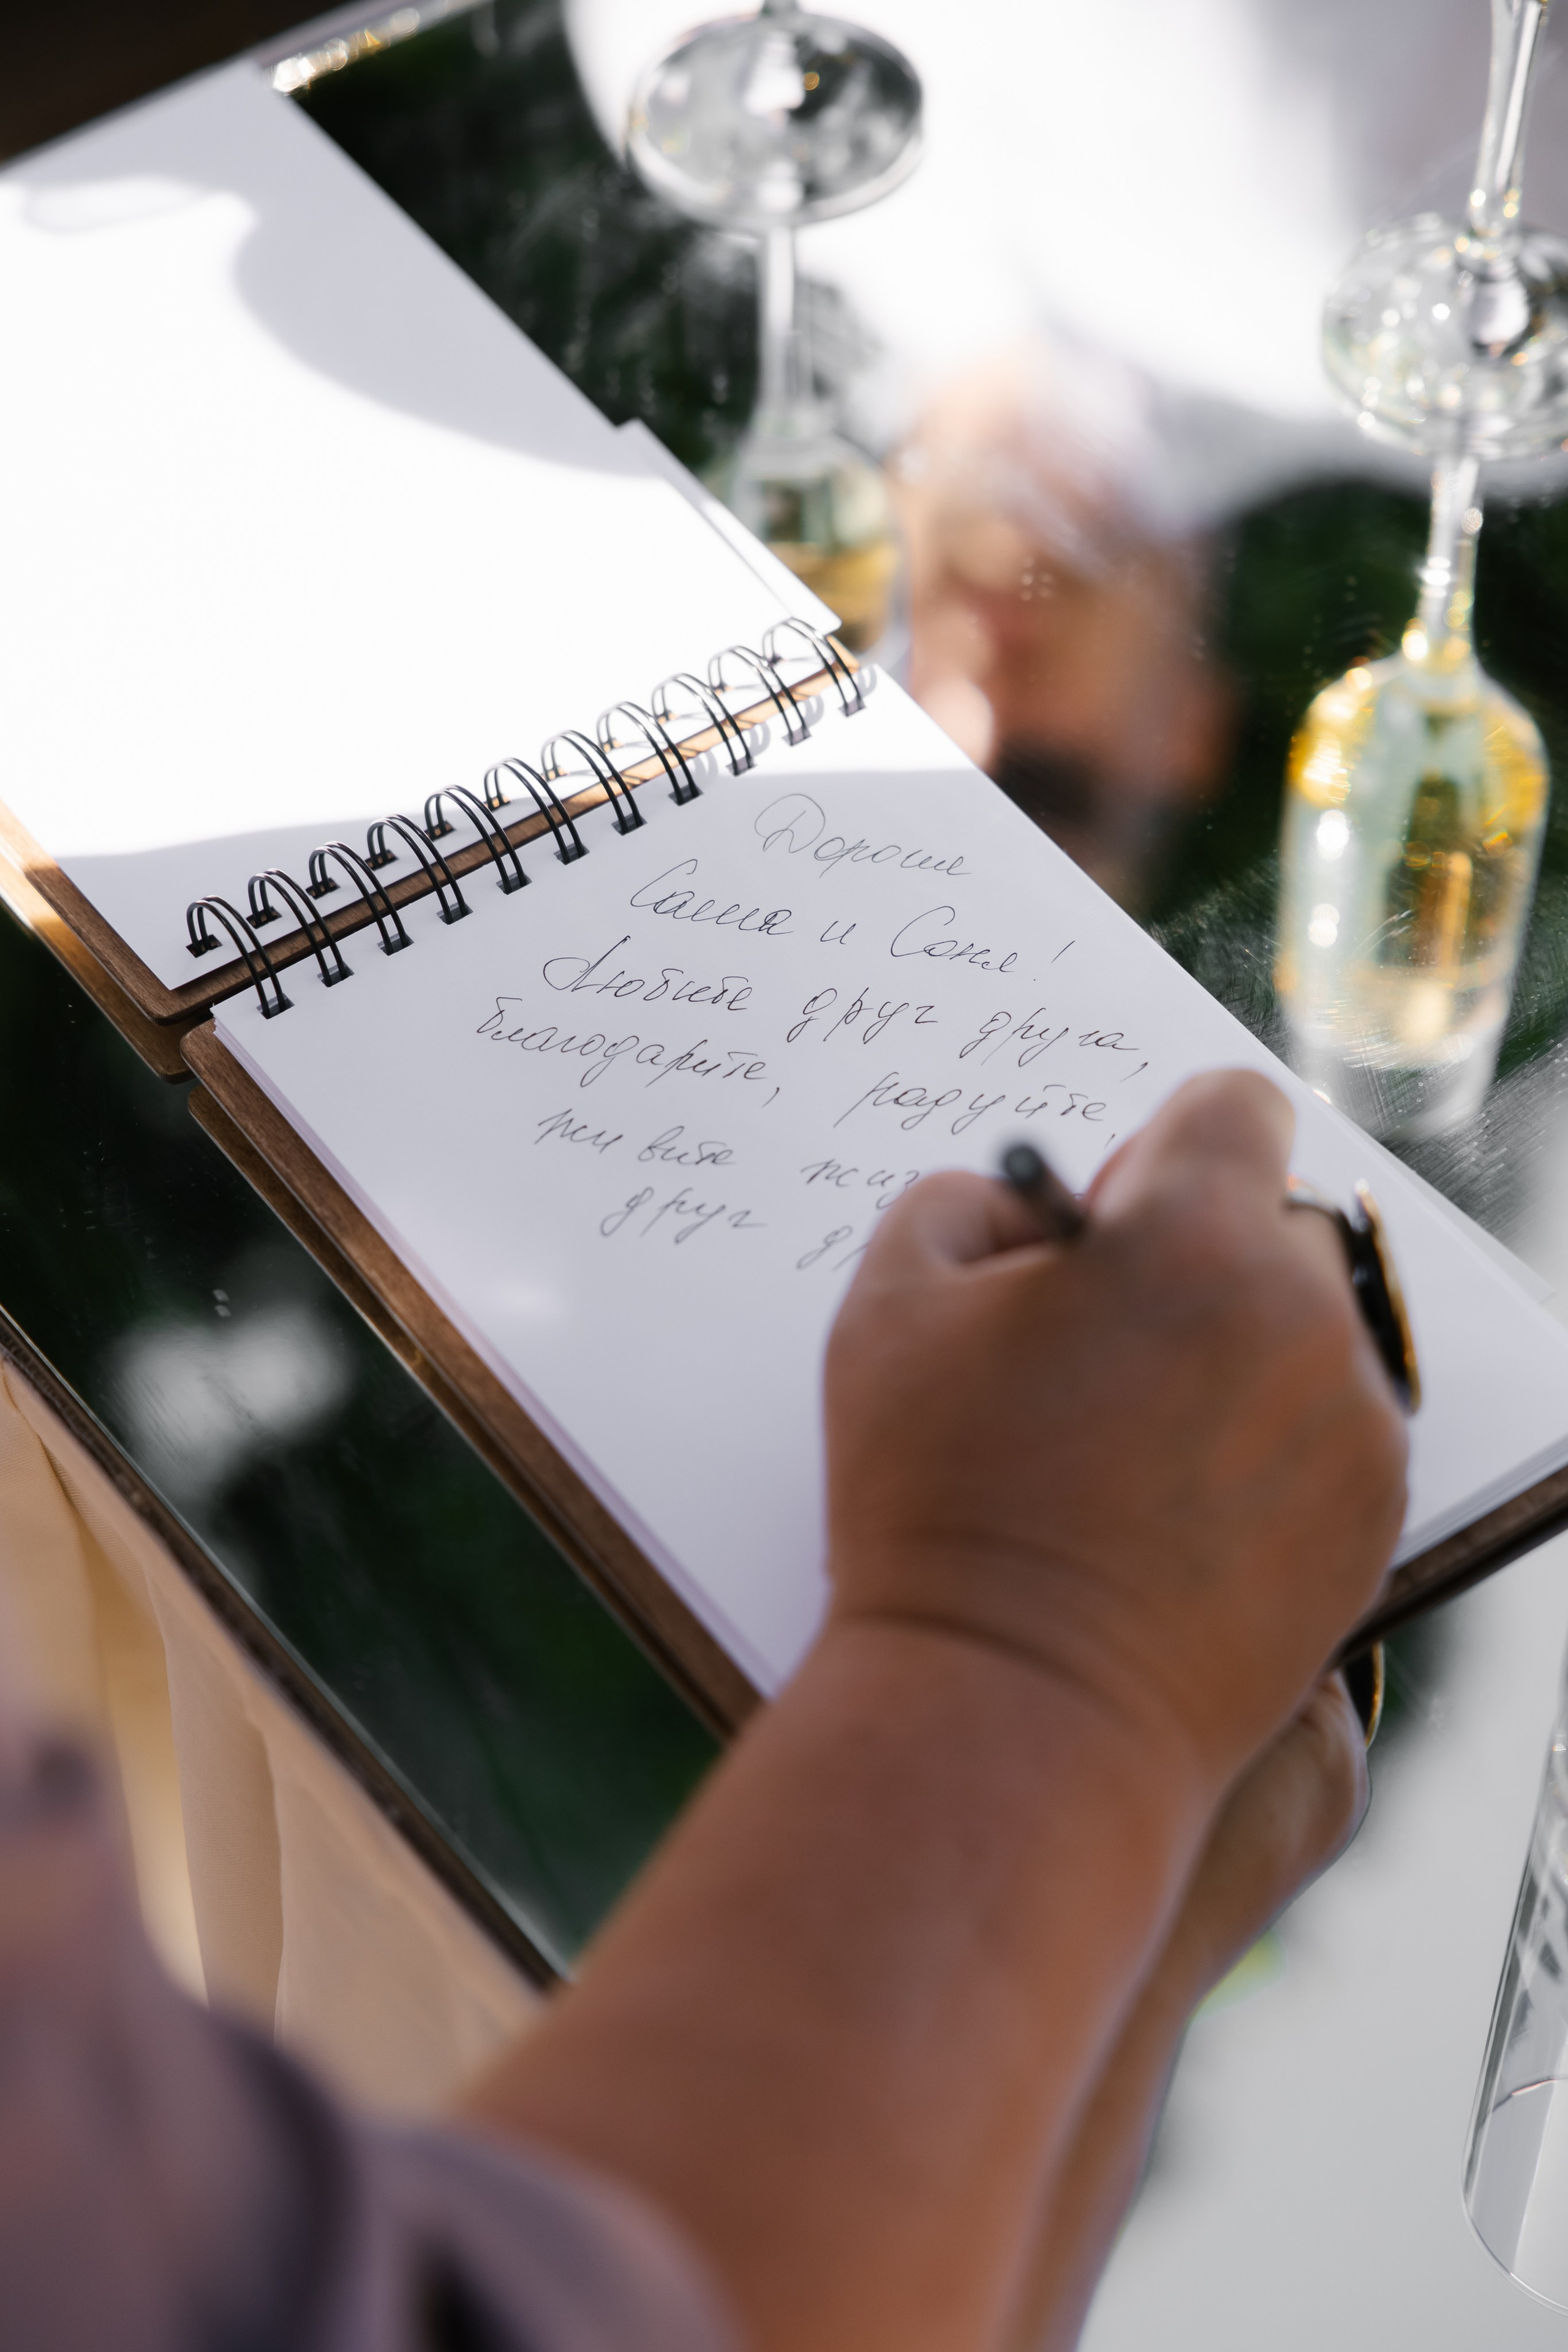 Дорогие
Саша и Соня!
Любите друг друга,
благодарите, радуйте,
живите
друг